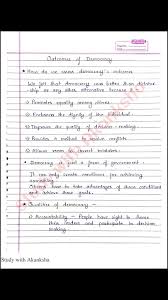 Outcomes of Democracy
How do we assess democracy's outcomes
We feel that democracy was better than dictator-
ship or any other alternative because it :-
Promotes equality among citizens
Enhances the dignity of the individual
Improves the quality of decision-making
Provides a method to resolve conflicts
Allows room to correct mistakes
Democracy is just a form of government.
It can only create conditions for achieving
something.
Citizens have to take advantages of those conditions
and achieve those goals.
Qualities of democracy -
Accountability - People have right to choose
their leaders and participate in decision
making
Study with Akanksha